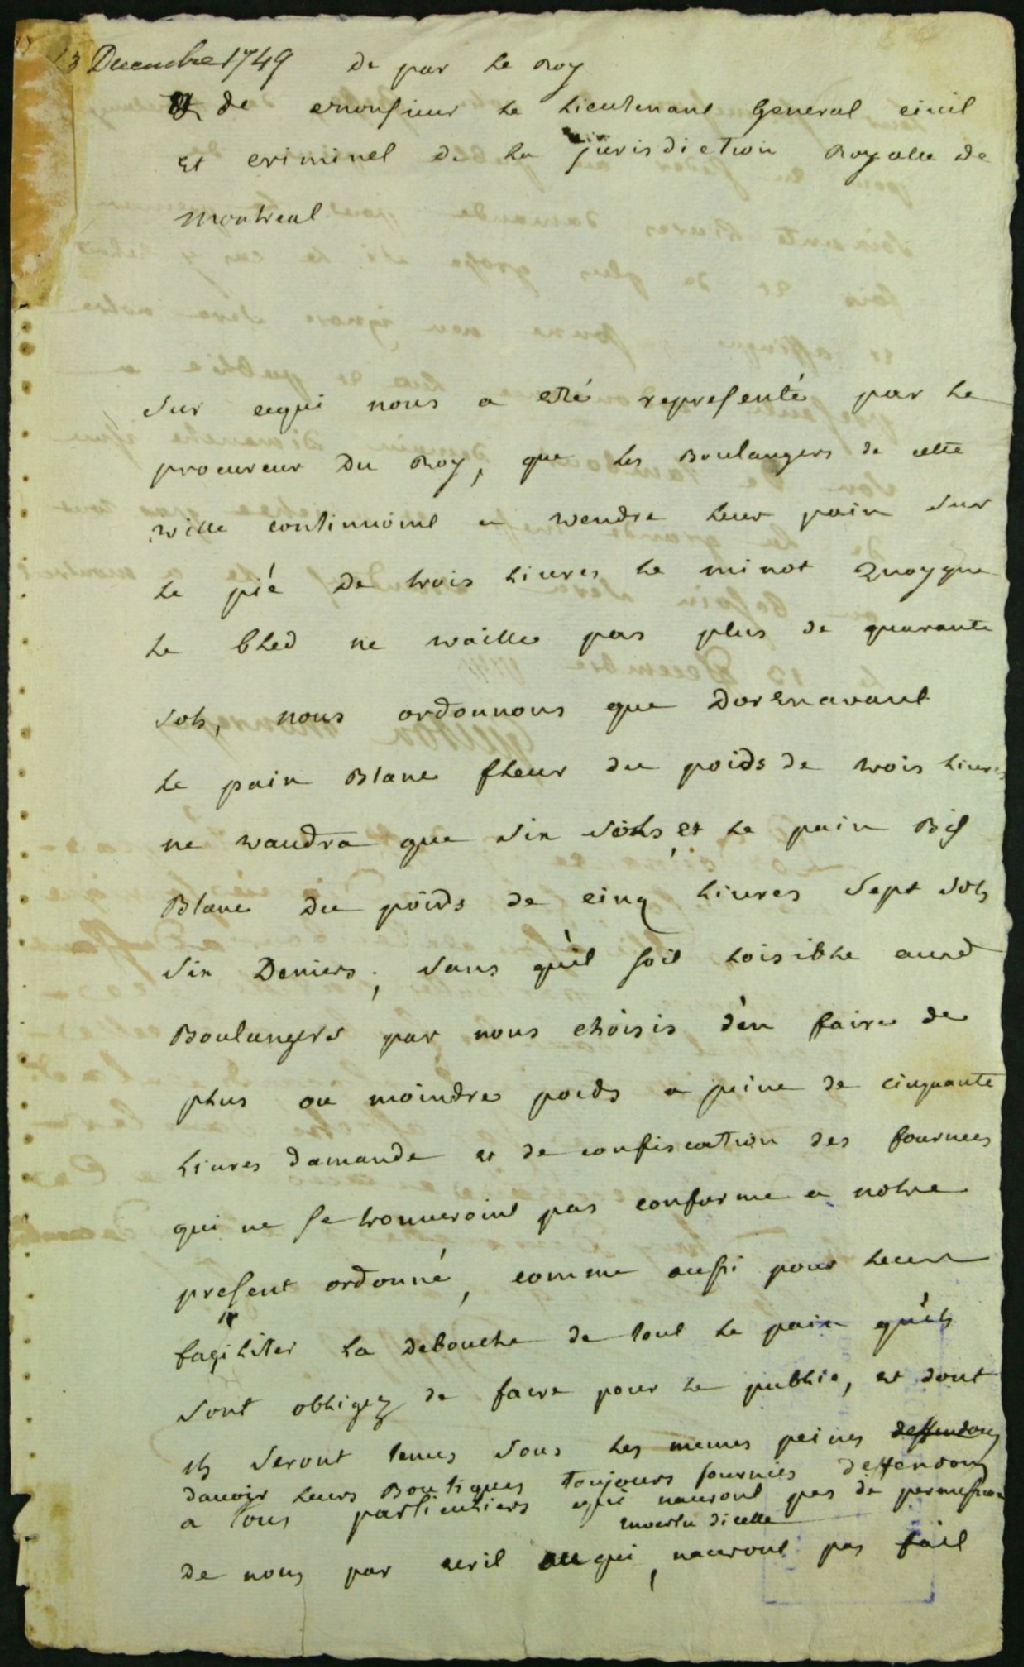 13 Decembre 1749 De par le Roy
Et de Monsieur le Lieutenant General civil
et criminel de la jurisdiction Royalle de
Montreal
Sur cequi nous a eté representé par le
procureur Du Roy, que les Boulangers de cette
ville continuoint a vendre leur pain sur
le pié de trois livres le minot Quoyque
le bled ne vaille pas plus de quarante
sols, nous ordonnons que Dorenavant
le pain Blanc fleur du poids de trois livres
ne vaudra que six sols, et le pain Bis
Blanc Du poids de cinq livres sept sols
six Deniers, sans quil soit loisible auxd
Boulangers par nous choisis d'en faire de
plus ou moindre poids a peine de cinquante
livres damande et de confiscation des fournees
qui ne se trouveroint pas conforme a notre
present ordonné, comme aussi pour leur
faciliter la debouche de tout le pain qu'ils
sont obligez de faire pour le public, et dont
ils seront tenus sous les memes peines deffendons
davoir leurs Boutiques toujours fournies deffendons
a tous particuliers qui nauront pas de permission
envertu dicelle
de nous par ecrit ou qui, nauront pas fait